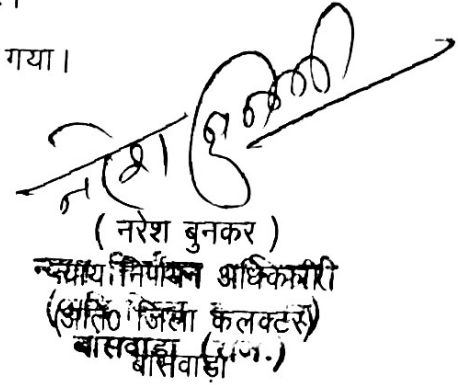 गया।
नरेश
( नरेश बुनकर )
न्याय निर्णयन अधिकारी
(अति0 जिला कलक्टर)
बांसवाड़ा (राज.)
बांसवाड़ा